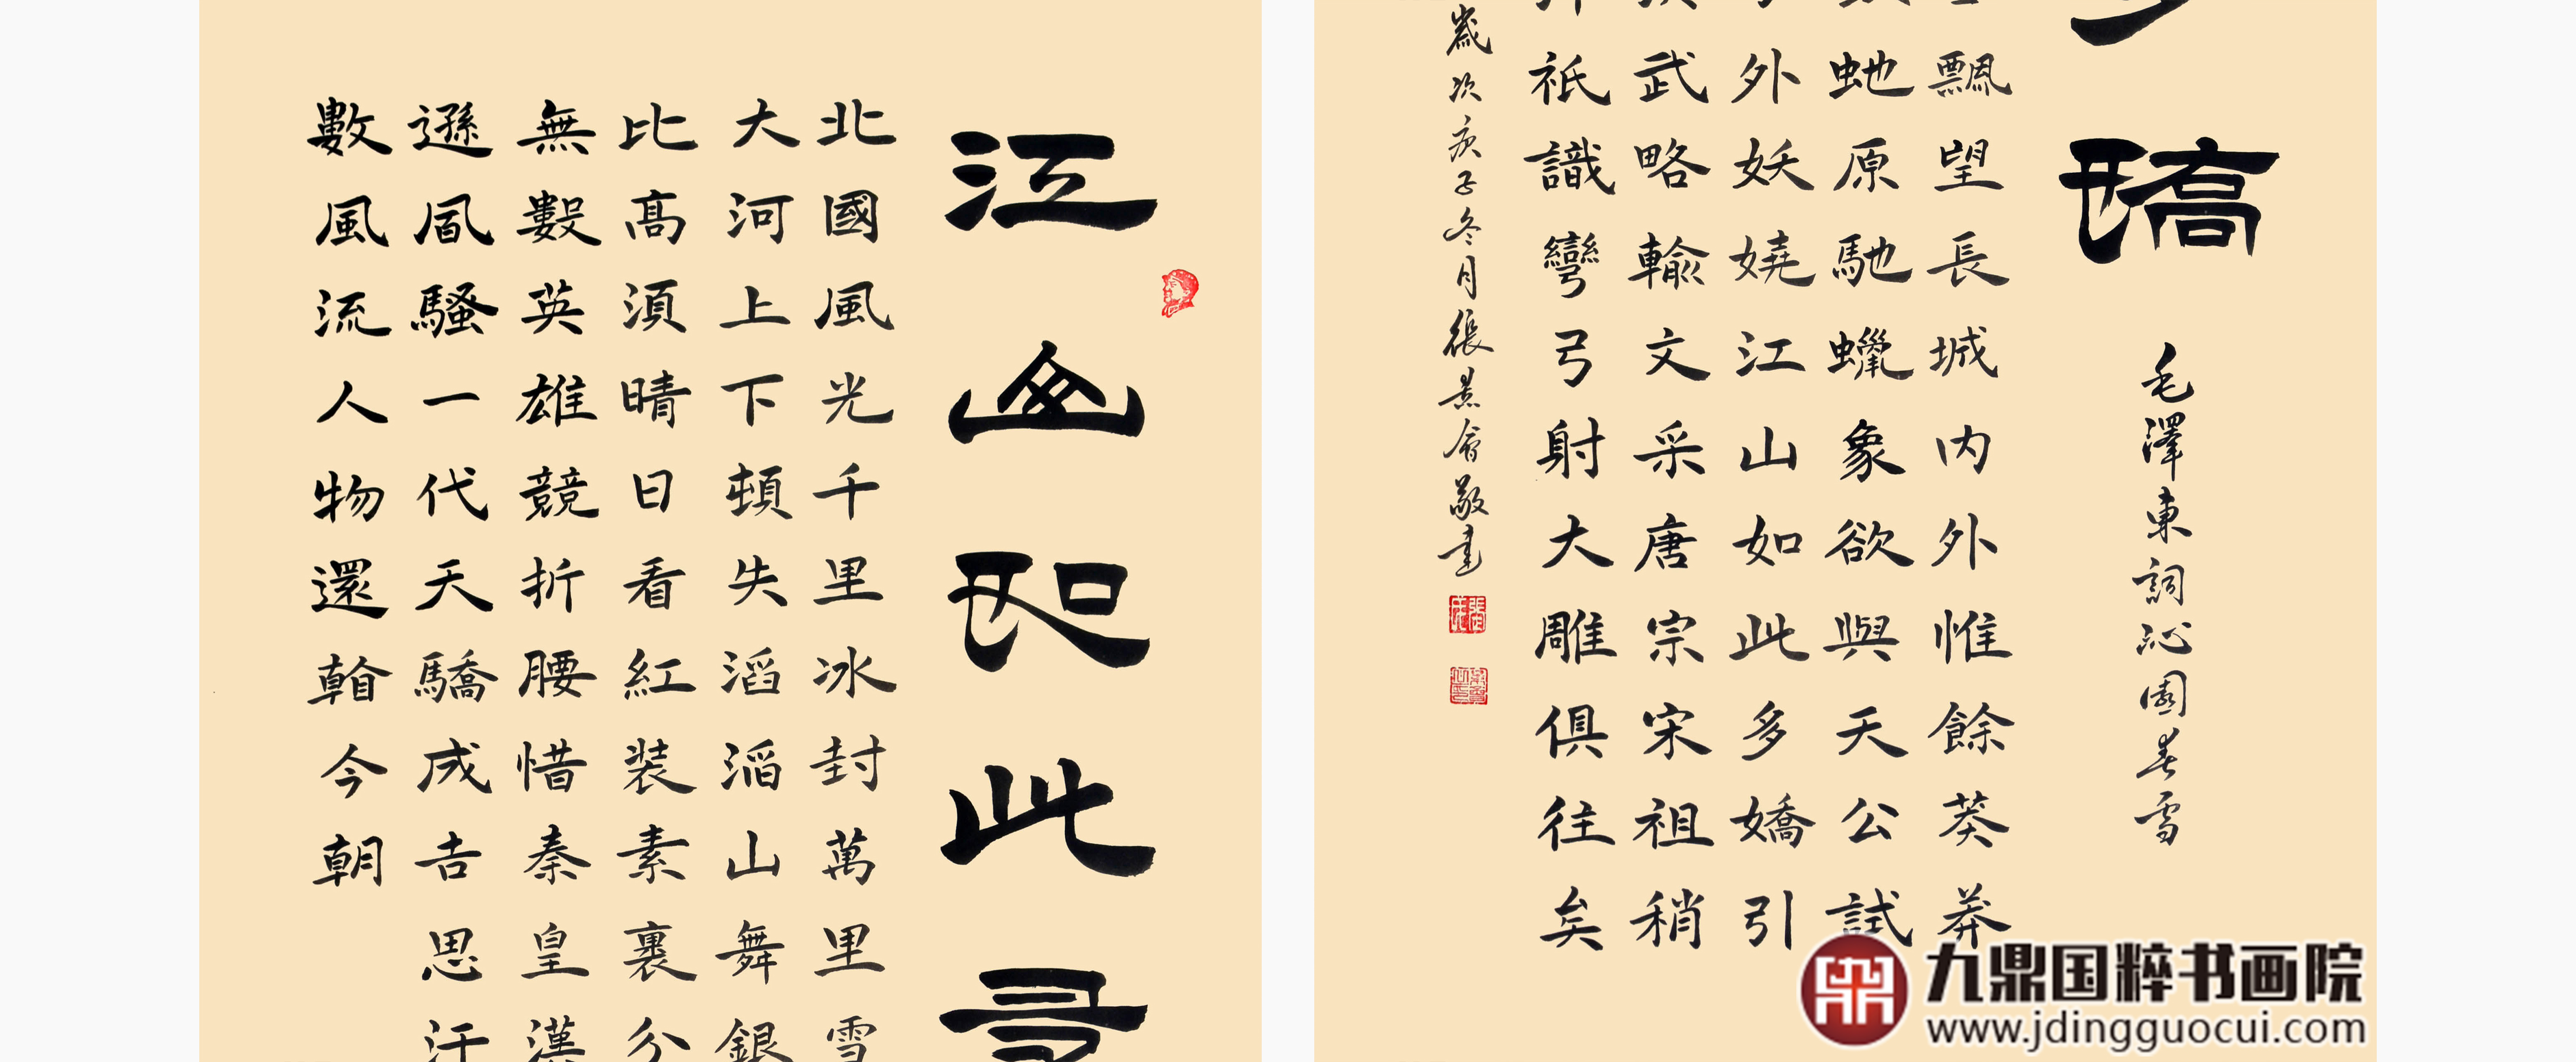 江山如此多
北國風光千里冰封萬里雪
大河上下頓失滔滔山舞銀
比高須晴日看紅装素裹分
無數英雄競折腰惜秦皇漢
遜風騷一代天驕成吉思汗
數風流人物還看今朝
嬌
毛澤東詞沁園春雪
飄望長城内外惟餘莽莽
蛇原馳蠟象欲與天公試
外妖嬈江山如此多嬌引
武略輸文采唐宗宋祖稍
祇識彎弓射大雕俱往矣
歲次庚子冬月張景會敬書
九鼎国粹书画院
www.jdingguocui.com